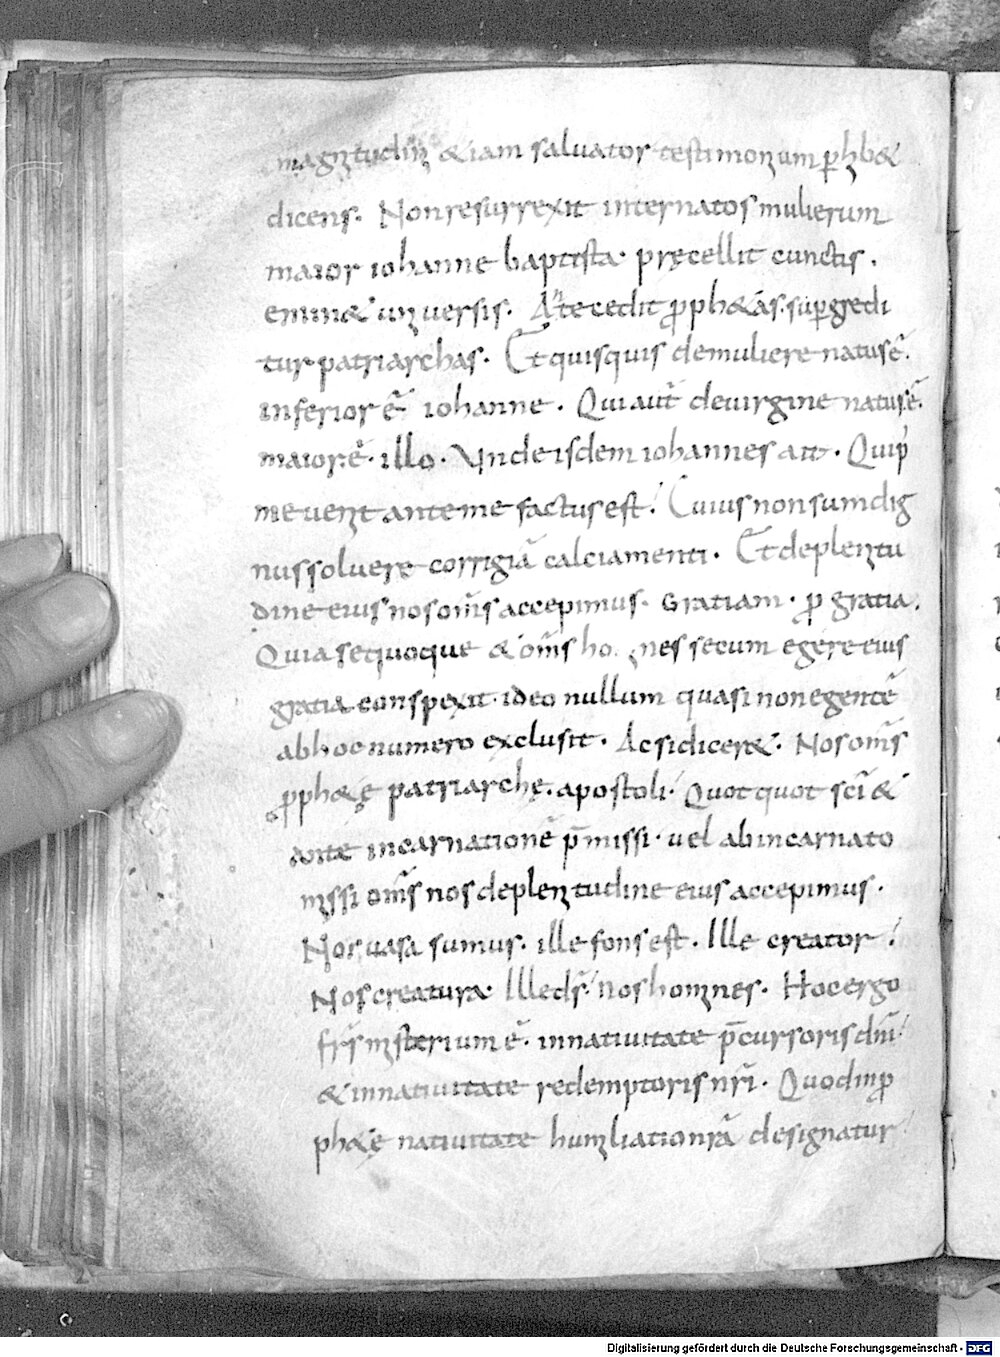 magnitudini &iam saluator testimonium phib&
dicens. Non resurrexit inter natos mulierum
maior iohanne baptista. pręcellit cunctis.
emin& uniuersis. Antecedit proph&as. supgredi
tur patriarchas. Et quisquis demuliere natus ē.
inferior ē iohanne. Qui aut̄ deuirgine natus ē.
maior ē. illo. Vnde isdem iohannes ait. Qui p
me uenit ante me factus est. Cuius non sum dig
nus soluere corrigiā calciamenti. Et deplenitu
dine eius nos om̄s accepimus. Gratiam. pro gratia.
Quia se quoque & om̄s ho nes secum egere eius
gratia conspexit. ideo nullum quasi non egentē
ab hoc numero exclusit. Acsi dicer&. Nos om̄s
proph&ę patriarchę. apostoli. Quotquot sc̄i &
ante incarnationē p̄missi. uel ab incarnato
missi om̄s nos deplenitudine eius accepimus.
Nos uasa sumus. ille fons est. Ille creator.
Nos creatura. Ille ds̄. nos homines. Hoc ergo
fr̄s misterium ē. in natiuitate p̄cursoris dn̄i.
& in natiuitate redemptoris nr̄i. Quod in pro
ph&ę natiuitate humiliatio nr̄a designatur
Digitalisierung gefördert durch die Deutsche Forschungsgemeinschaft - DFG